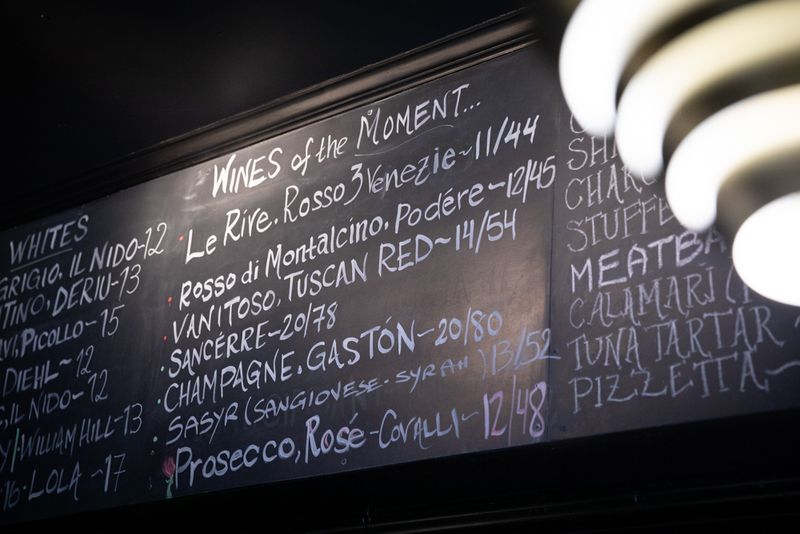 WHITES
GRIGIO, IL NIDO-12
TINO, DERIU-13
VI, PICOLLO-15
DIEHL-12
IL NIDO-12
WILLIAM HILL-13
LOLA-17
WINES of the MOMENT...
Le Rive, Rosso 3 Venezie~11/44
Rosso di Montalcino, Podére~12/45
VANITOSO, TUSCAN RED~14/54
SANCÉRRE-20/78
CHAMPAGNE, GASTÓN~20/80
SASYR (SANGIOVESE-SYRAH) 13/52
Prosecco, Rosé-COVALLI~12/48
STUFFE
MEATBA
CALAMARI
TUNA TARTAR
PIZZETTA~